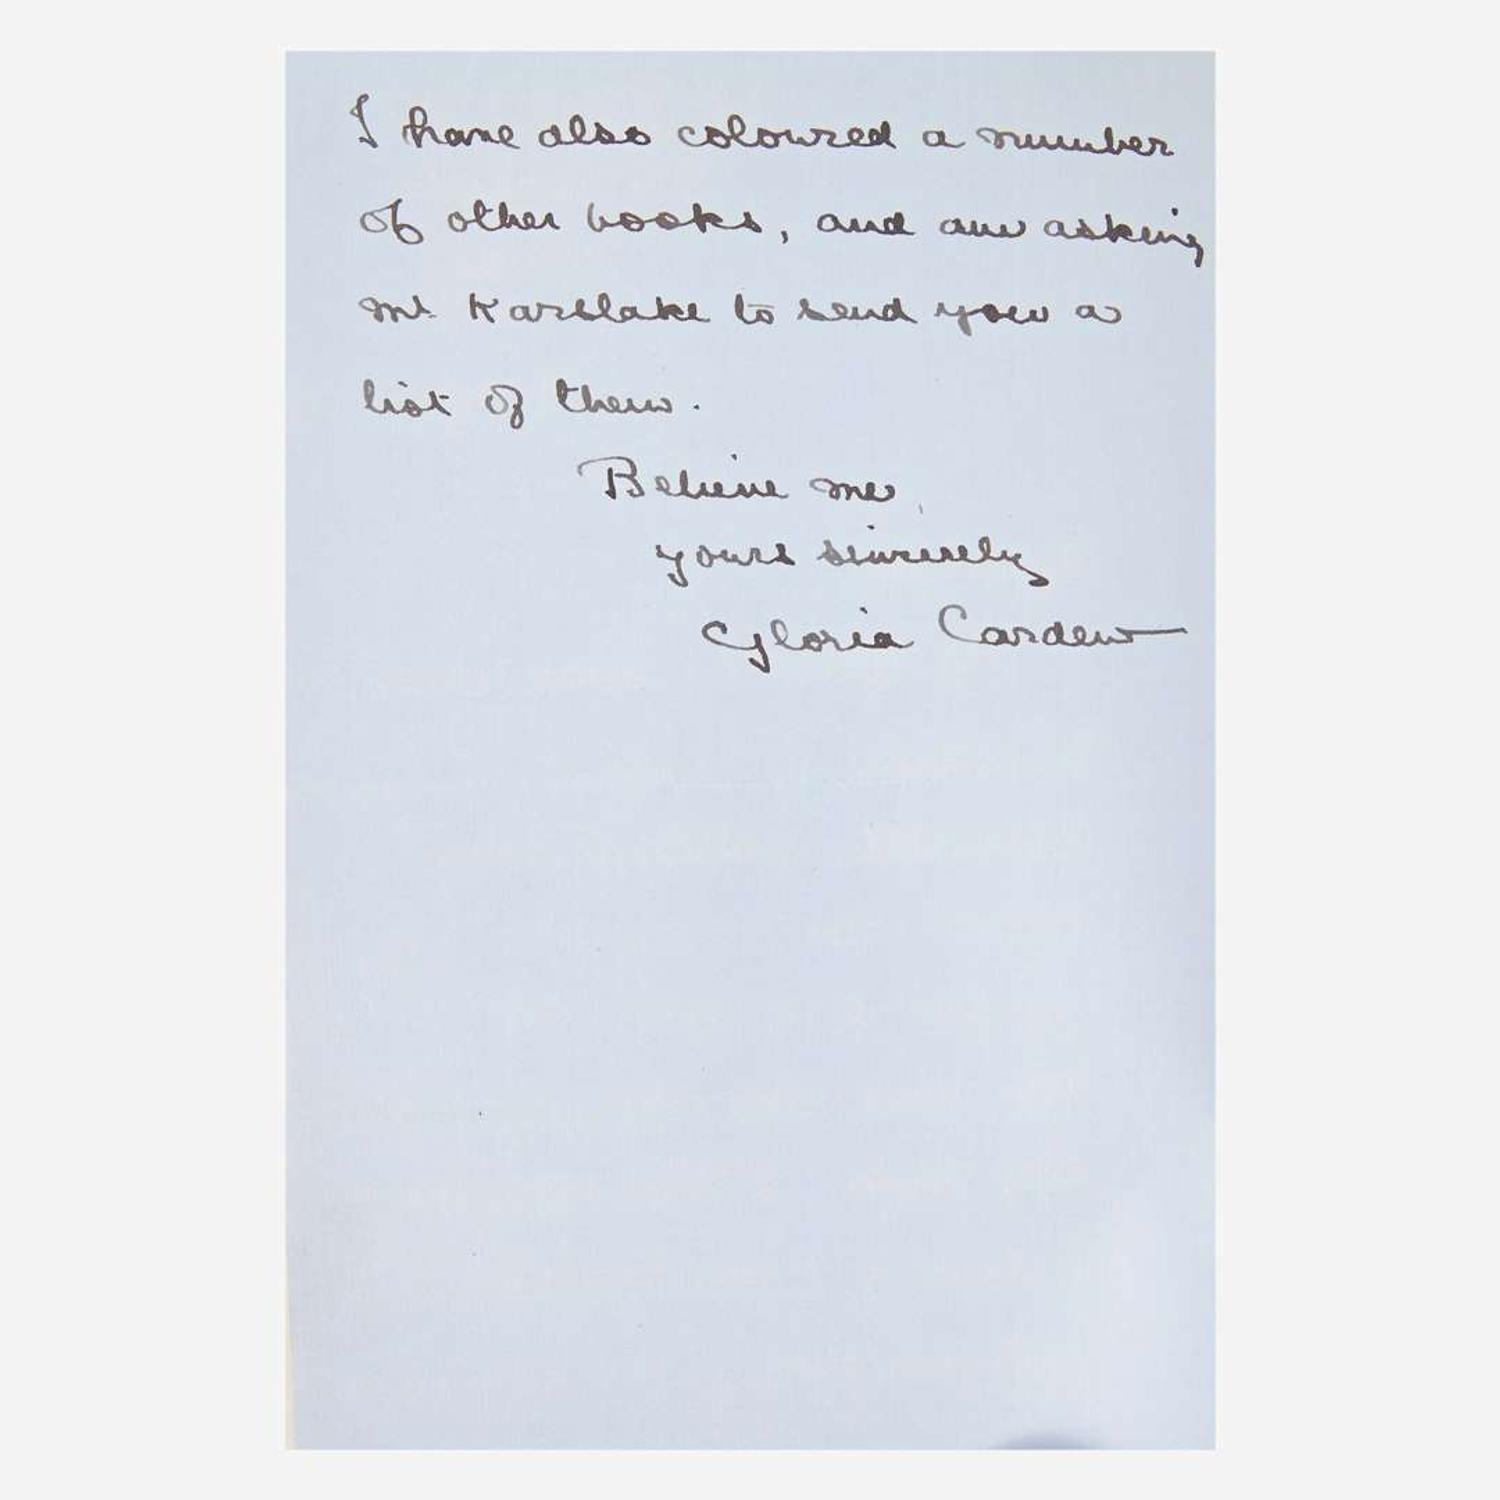 I have also coloured a number
of other books, and am asking
Mr. Karslake to send you a
list of them.
Believe me,
yours sincerely
Gloria Cardew